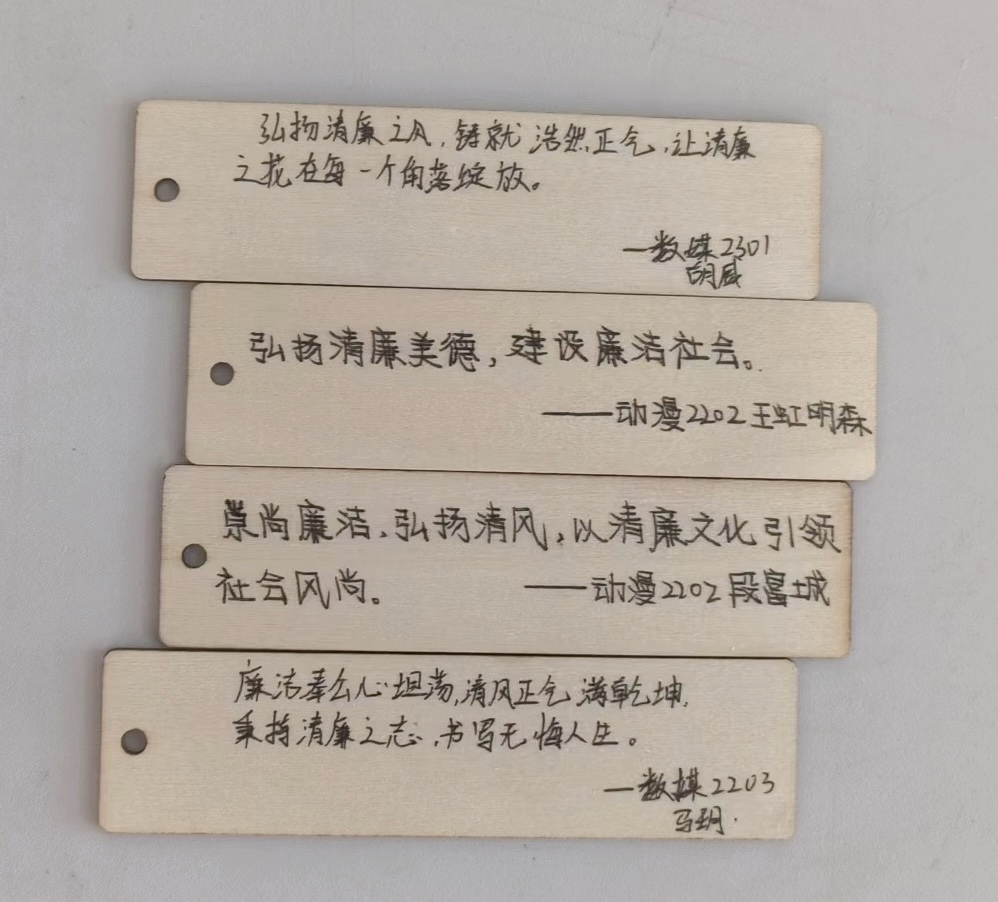 弘扬清廉之风,铸就浩然正气,让清廉
之花在每一个角落绽放。
—数媒2301
胡威
弘扬清廉美德,建设廉洁社会。
——动漫2202王虹明森
崇尚廉洁,弘扬清风,以清廉文化引领
社会风尚。 ——动漫2202段富城
廉洁奉公心坦荡,清风正气满乾坤,
秉持清廉之志,书写无悔人生。
—数媒2203
马玥.